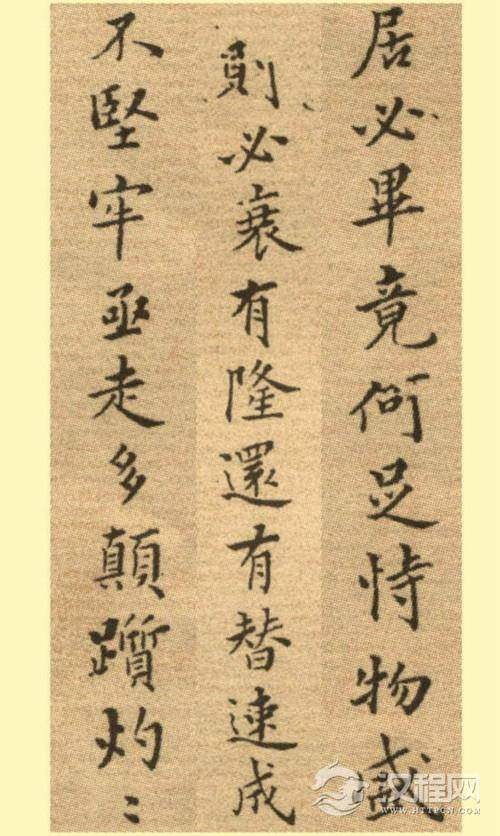 居必畢竟何足恃物盛
則必衰有隆還有替速成
不堅牢亟走多顛躓灼〻
汉程网
HTTPCN.COM